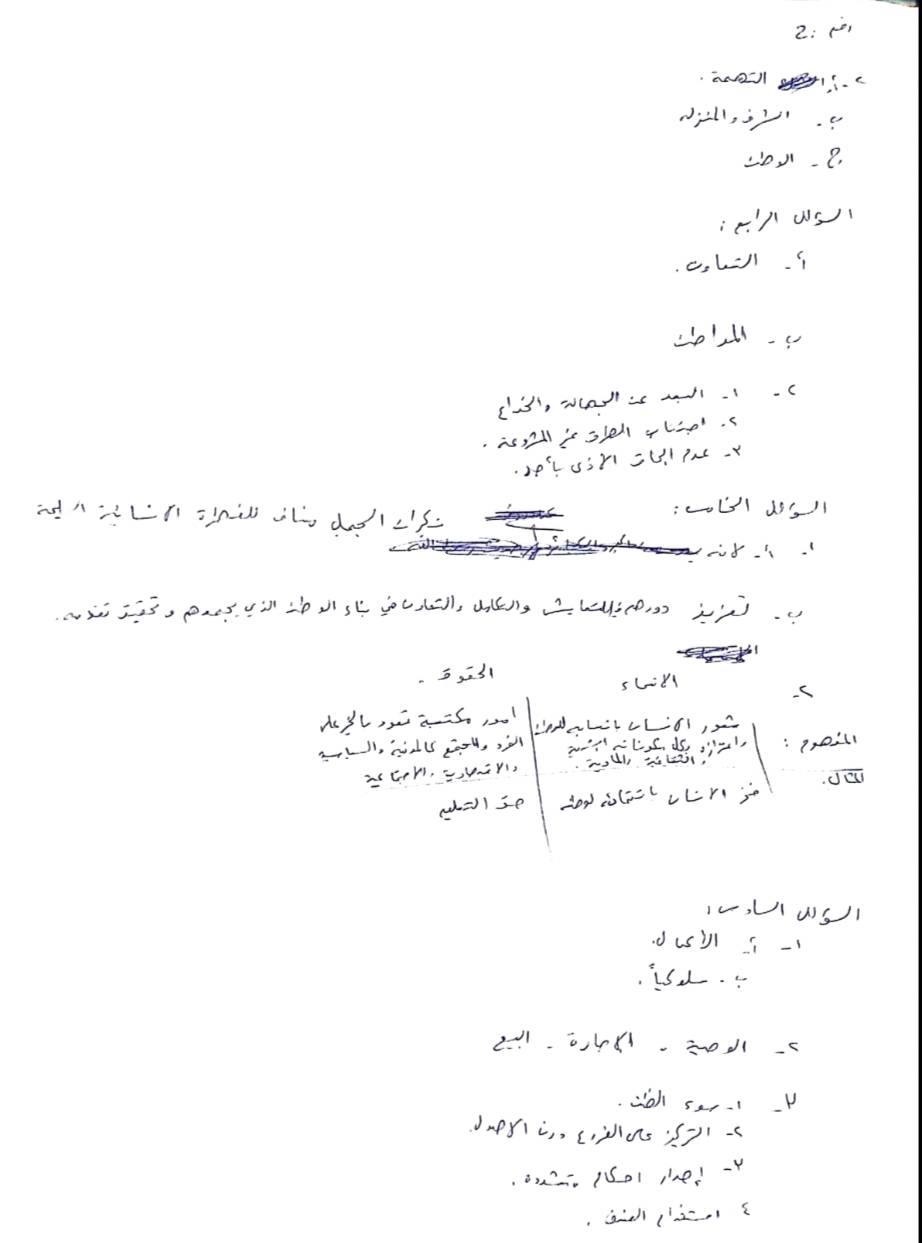 رقم : 2
٢- أ- التهمة .
ب- الشرف والمنزله
ج- الوطن
السؤال الرابع :
أ- التعاون .
ب- المواطن
٢- ١- البعد عن الجهالة والخداع
٢- اجتناب الطرق غير المشروعة .
٣- عدم الحاق الأذى بأحد .
السؤال الخامس :
١- أ- لانه نكران الجميل مناف للفطرة الانسانية السليمة
ب- تعزيز دورهم في التعايش والتكامل والتعاون في بناء الوطن الذي يجمعهم وتحقيق تقدمه .
٢- الانتماء الحقوق .
المفهوم : شعور الانسان بانتسابه للوطن امور مكتسبة تعود بالخير على
واعتزازه بكل مكوناته البشرية الفرد والمجتمع كالمدنية والسياسية
والثقافية والمادية . والاقتصادية والاجتماعية
المثال . فخر الانسان بانتمائه لوطنه حق التعليم
السؤال السادس :
١- أ- الأعمال
ب . سلوكياً .
٢- الوصية - الإجارة - البيع
٣- ١- سوء الظن .
٢- التركيز على الفروع دون الاصول
٣- إصدار احكام متشددة .
٤ استخدام العنف .